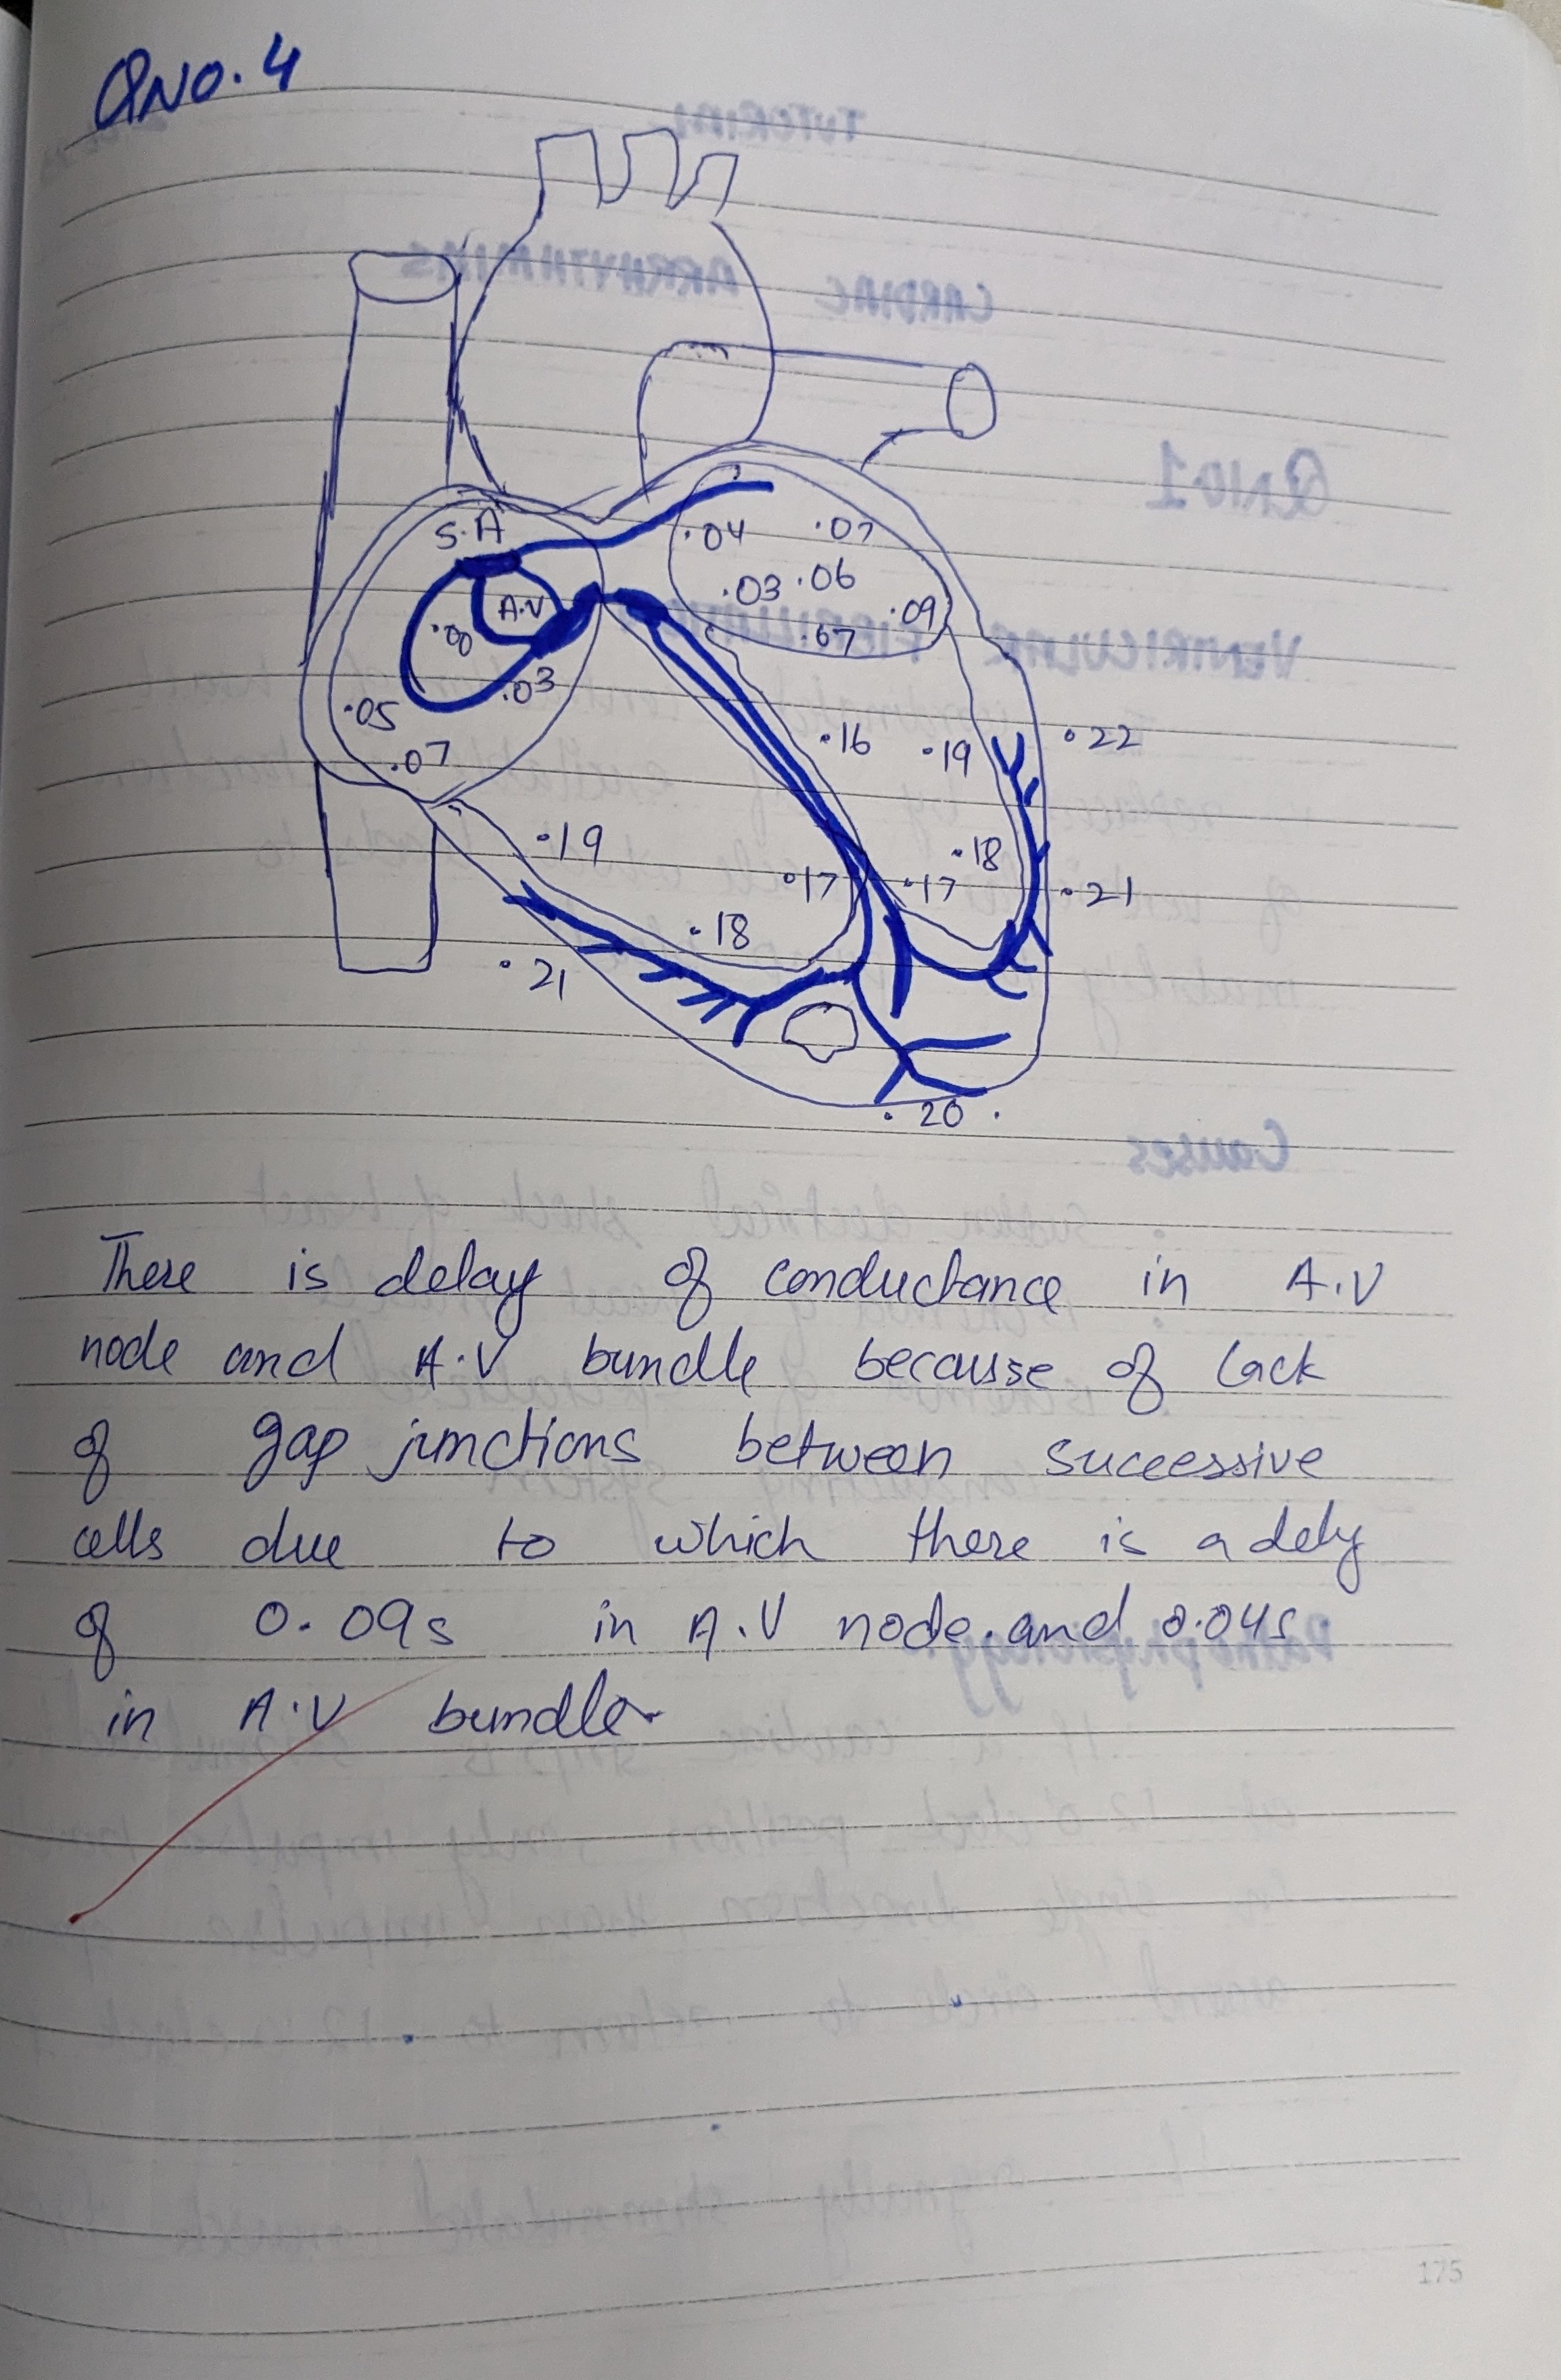 QNO.4
S.A
.04 .07
.03 .06
A.V
.09
.00
.07
.03
.05
.07
.16 .19 .22
.19
.18
.17 .17 .21
.18
.21
.20 .
There is delay of conductance in A.V
node and A.V bundle becausse of lack
of gap junctions between successive
cells due to which there is a dely
of 0.09s in A.V node. and 0.04s
in A.V bundle
175